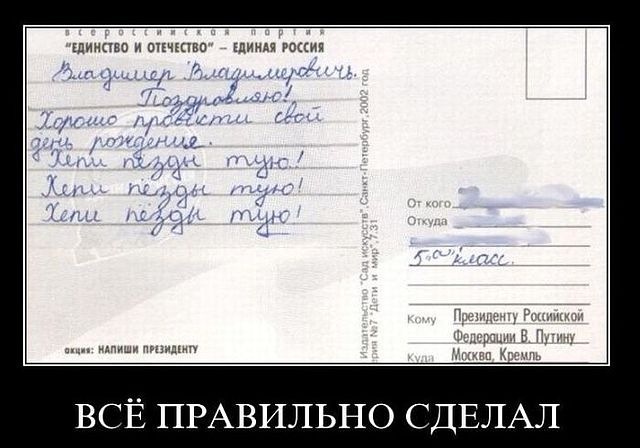 всероссийская партия
"ЕДИНСТВО И ОТЕЧЕСТВО" – ЕДИНАЯ РОССИЯ
Владимир Владимеровичь.
Поздровляю!
Хорошо провести свой
день рождение.
Хепи пёзды тую!
Хепи пёзды тую!
Хепи пёзды тую!
акция: НАПИШИ ПРЕЗИДЕНТУ
Издательство "Сад искусств", Санкт-Петербург, 2002 год
серия №7 "Дети и мир", 7.31
От кого
Откуда
5 "а" класс.
Кому Президенту Российской
Федерации В. Путину
Куда Москва, Кремль
ВСЁ ПРАВИЛЬНО СДЕЛАЛ